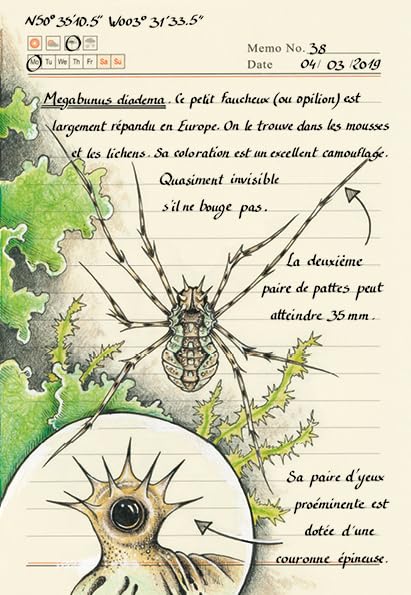 N50° 35'10.5" W003° 31'33.5"
Memo No. 38
Mo Tu We Th Fr Sa Su
Date 04/ 03 /2019
Megabunus diadema. Ce petit faucheux (ou opilion) est
largement répandu en Europe. On le trouve dans les mousses
et les lichens. Sa coloration est un excellent camouflage.
Quasiment invisible
s'il ne bouge pas.
La deuxième
paire de pattes peut
atteindre 35 mm.
Sa paire d'yeux
proéminente est
dotée d'une
couronne épineuse.